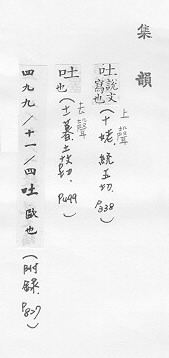 集韻
上聲
吐說文寫也(十姥.統五切.P338)
去聲
吐也(十一暮.土故切.P499)
四九九/十一/四吐歐也(附錄.P837)